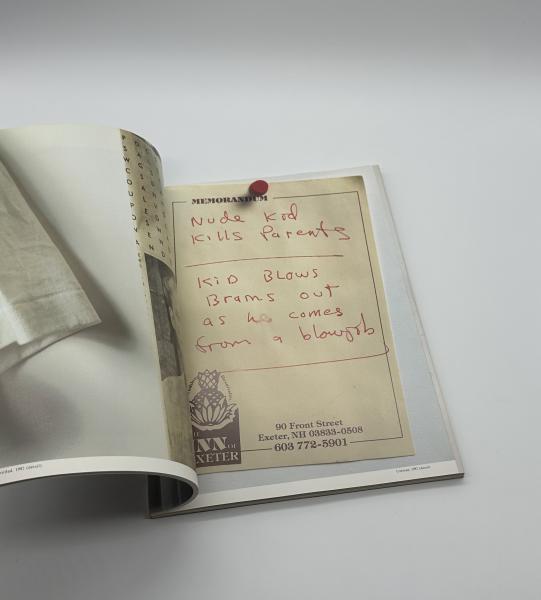 MEMORANDUM
Nude Kid
Kills Parents
Kid Blows
Brains out
as he comes
from a blowjob
INN OF
EXETER
90 Front Street
Exeter, NH 03833-0508
603 772-5901